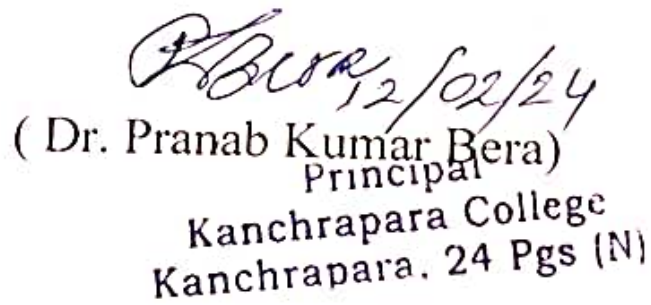 PKBera 12/02/24
( Dr. Pranab Kumar Bera)
Principal
Kanchrapara College
Kanchrapara. 24 Pgs (N)